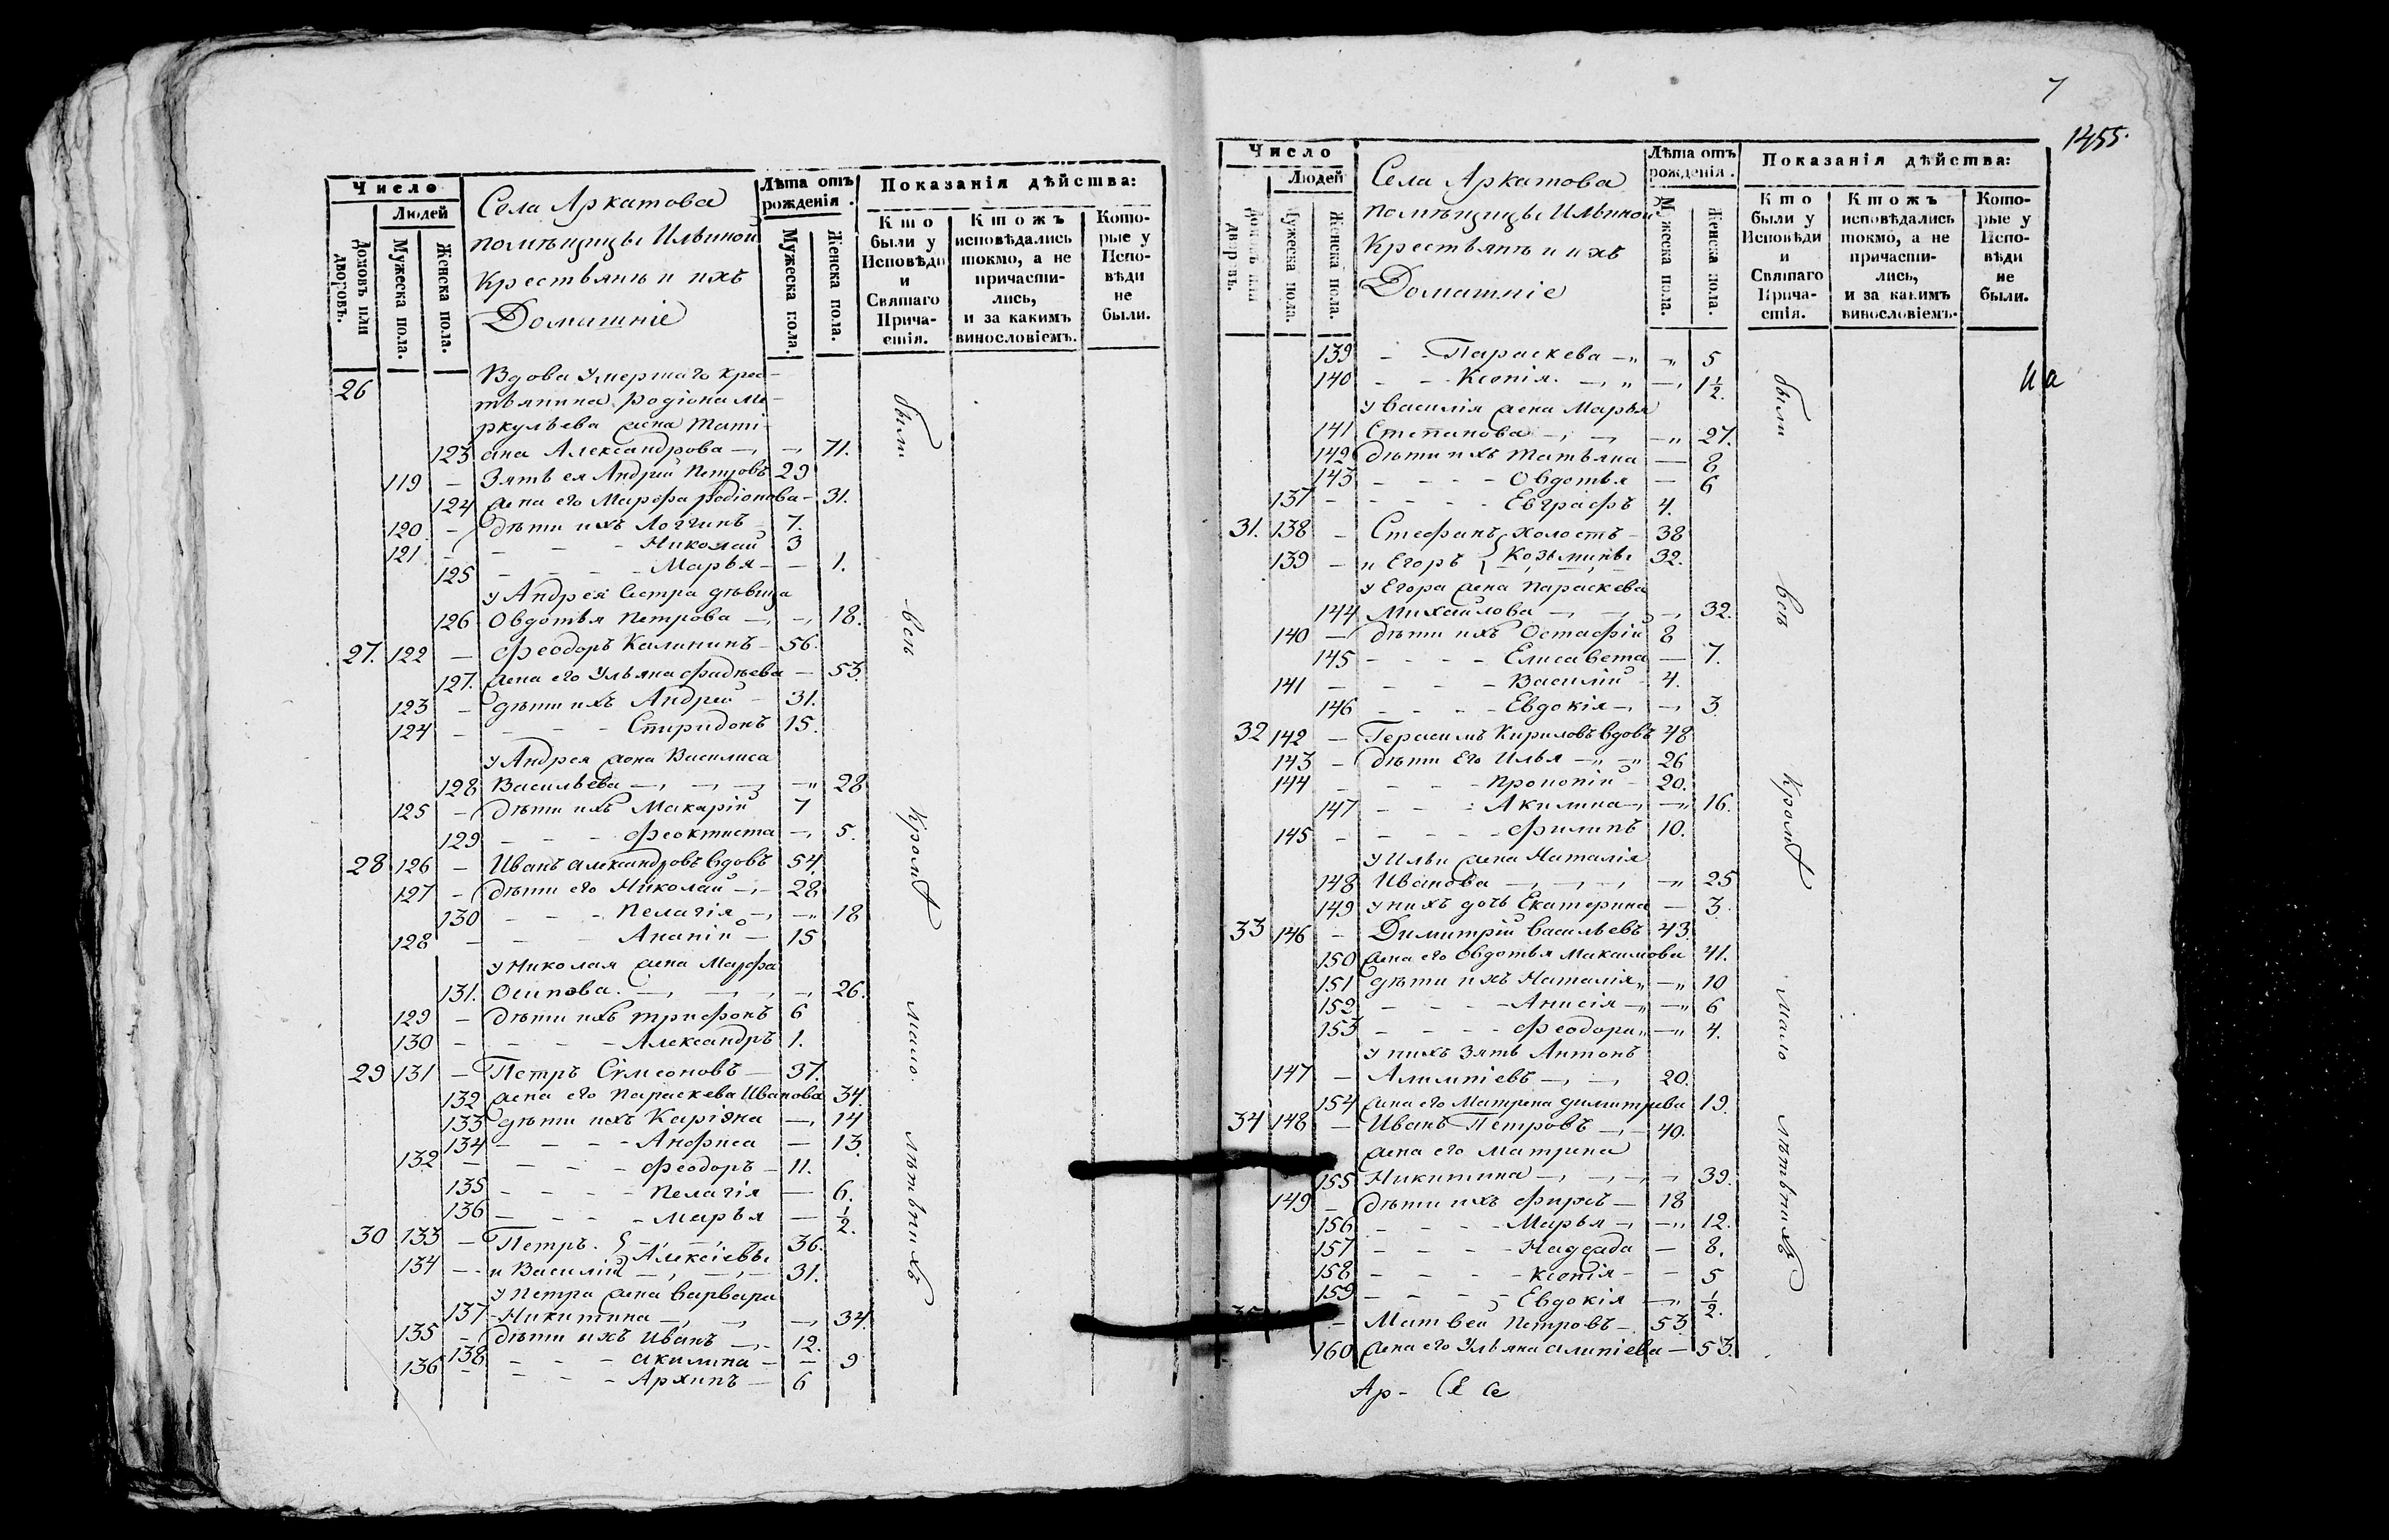 Число
Людей
Домовъ или дворовъ.
Мужеска пола.
Женска пола.
Села Аркатова
помѣщицы Ильиной
Крестьянъ и ихъ
Домашніе
Лѣта отъ рожденія.
Мужеска пола.
Женска пола.
Показанія дѣйства:
Кто были у Исповѣди и Святаго Причастія.
Ктожъ исповѣдались токмо, а не причастились, и за какимъ винословіемъ.
Которые у Исповѣди не были.
26 Вдова умершаго крес-
тьянина Родіона Ме-
ркульева жена Тати-
123 ана Александрова 71.
119 Зять ея Андрей Петровъ 29
124 жена его Марфа Родіонова 31.
120 дѣти ихъ Логгинъ 7.
121 Николай 3
125 Марья 1.
у Андрея сестра дѣвица
126 Овдотья Петрова 18.
27. 122 Феодоръ Калининъ 56.
127. жена его Ульяна Фадѣева 53.
123 дѣти ихъ Андрей 31.
124 Спиридонъ 15.
у Андрея жена Василиса
128 Васильева 28
125 дѣти ихъ Макарій 7
129 Феоктиста 5.
28 126 Иванъ Александровъ вдовъ 54.
127 дѣти его Николай 28
130 Пелагія 18
128 Ананій 15
у Николая жена Марфа
131. Осипова. 26.
129 дѣти ихъ Трифонъ 6
130 Александръ 1.
29 131 Петръ Сѵмеоновъ 37.
132 жена его Параскева Иванова 34.
133 дѣти ихъ Каріѳна 14
134 Анфиса 13.
132 Феодоръ 11.
135 Пелагія 6.
136 Марья 1/2.
30 133 Петръ. 36.
Алексіевы
134 и Василій 31.
у Петра жена Варвара
137 Никитина 34.
135 дѣти ихъ Иванъ 12.
138 Акилина 9
136 Архипъ 6
были всѣ кромѣ мало. лѣтнихъ
7
1455.
Число
Людей
Домовъ или дворовъ.
Мужеска пола.
Женска пола.
Села Аркатова
помѣщицы Ильиной
Крестьянъ и ихъ
Домашніе
Лѣта отъ рожденія.
Мужеска пола.
Женска пола.
Показанія дѣйства:
Кто были у Исповѣди и Святаго Причастія.
Ктожъ исповѣдались токмо, а не причастились, и за какимъ винословіемъ.
Которые у Исповѣди не были.
139 Параскева 5
140 Ксенія. 1 1/2.
у Василія жена Марья
141 Степанова 27.
142 дѣти ихъ Татьяна 8
143 Овдотья 6
137 Евграфъ 4.
31. 138 Стефанъ холостъ 38
139 и Егоръ Козьмины 32.
у Егора жена Параскева
144 Михайлова 32.
140 дѣти ихъ Остафій 8
145 Елисавета 7.
141 Василій 4.
146 Евдокія 3.
32 142 Герасимъ Кириловъ вдовъ 48
143 дѣти его Илья 26
144 Пропопій 20.
147 Акилина 16.
145 Филипъ 10.
у Ильи жена Наталія
148 Иванова 25
149 у нихъ дочь Екатерина 3.
33 146 Димитрій Васильевъ 43.
150 жена его Овдотья Макамова 41.
151 дѣти ихъ Наталія 10
152 Анисія 6
153 Феодора 4.
у нихъ зять Антонъ
147 Алимпіевъ 20.
154 жена его Матрена Димитрева 19.
34 148 Иванъ Петровъ 40.
жена его Матрена
155 Никитина 39.
149 дѣти ихъ Фирсъ 18
156 Марья 12.
157 Надежда 8.
158 Ксенія 5
159 Евдокія 1/2.
35 Матвей Петровъ 53.
160 жена его Ульяна Алипіева 53.
были всѣ кромѣ мало лѣтнихъ
Ар-